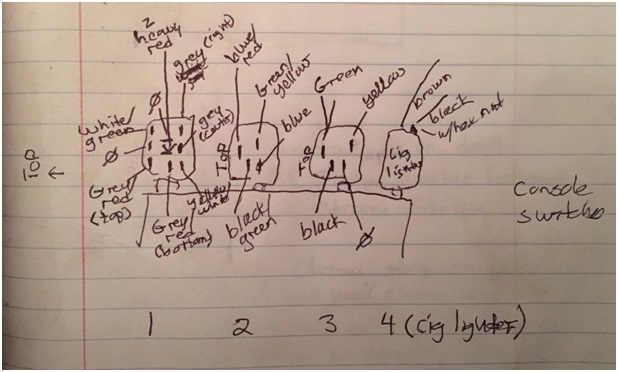 2
heavy
red
grey (right)
blue/
red
Green/
yellow
Green
yellow
brown
black
w/hex nut
white/
green
Ø
Ø
grey
(center)
blue
TOP
TOP
TOP ←
Cig
lighter
Grey
red
(top)
yellow/
white
Grey
red
(bottom)
black
green
black
Ø
Console
switches
1 2 3 4 (cig lighter)